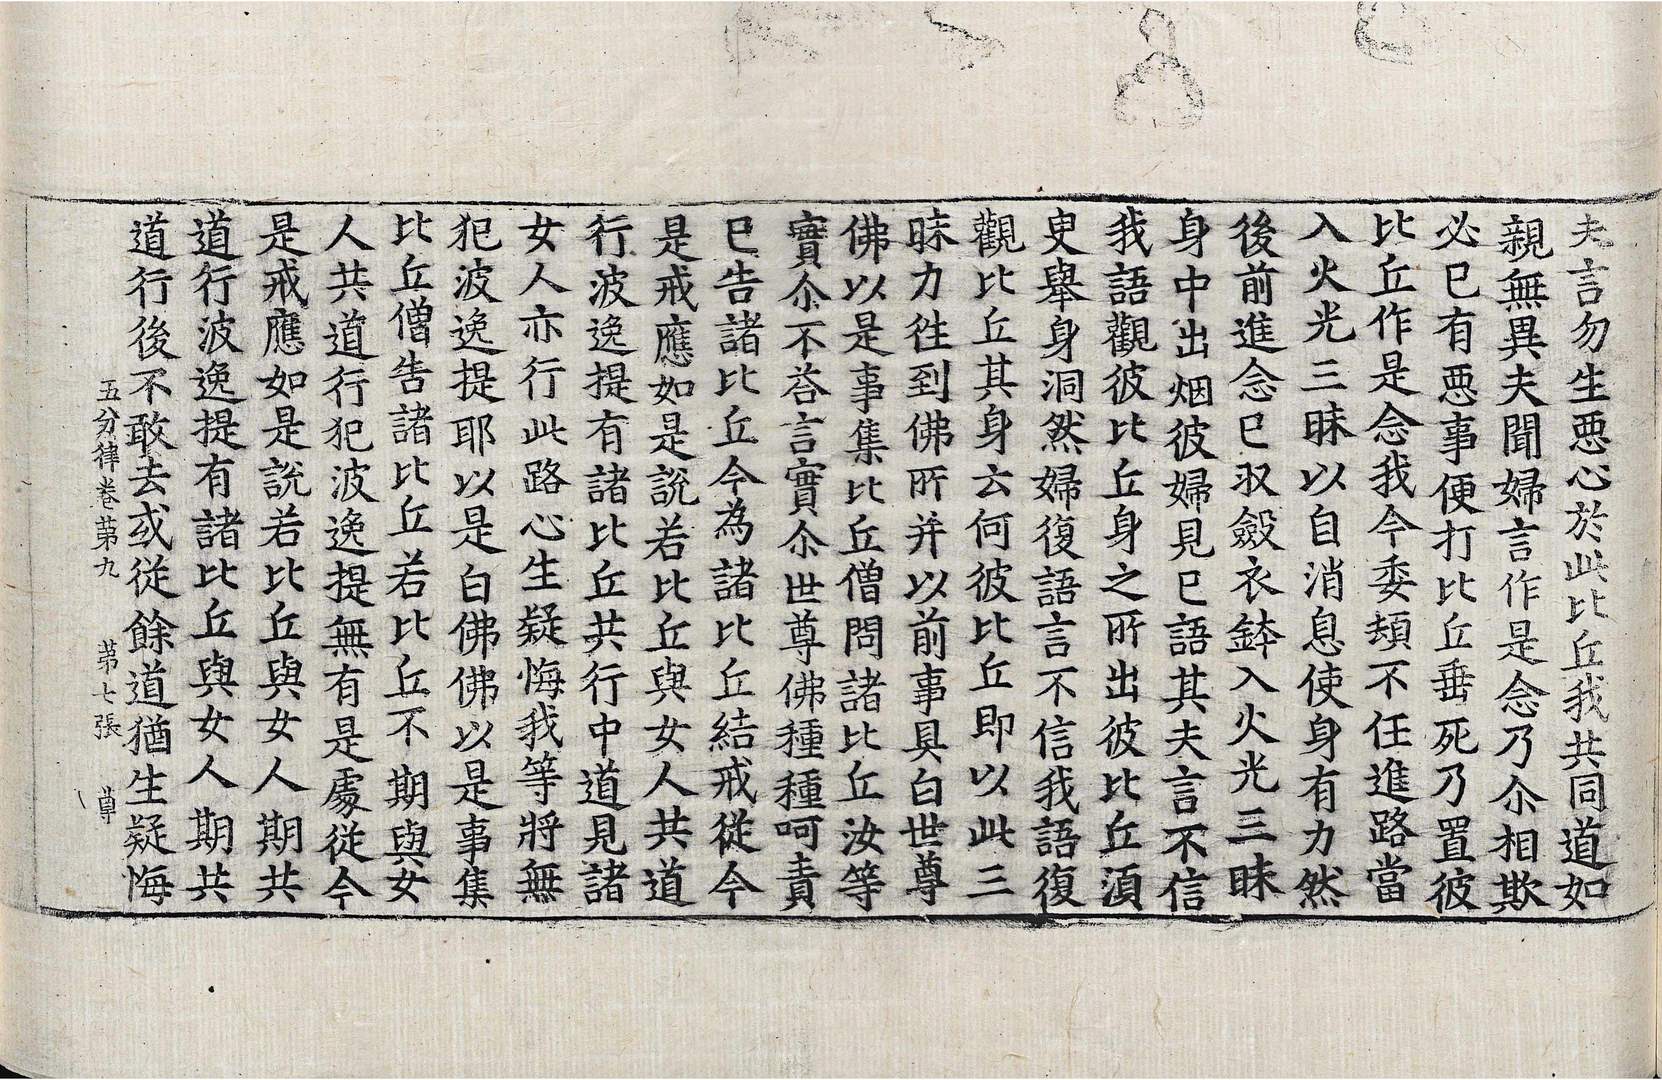 夫言勿生恶心於此比丘我共同道如
親無異夫聞婦言作是念乃尒相欺
必已有恶事便打比丘垂死乃置彼
比丘作是念我今委頓不任進路當
入火光三昧以自消息使身有力然
後前進念已収斂衣鉢入火光三昧
身中出烟彼婦見已語其夫言不信
我語觀彼比丘身之所出彼比丘湏
臾舉身洞然婦復語言不信我語復
觀比丘其身云何彼比丘即以此三
昧力徃到佛所并以前事具白世尊
佛以是事集比丘僧問諸比丘汝等
實尒不荅言實尒世尊佛種種呵責
已告諸比丘今為諸比丘結戒從今
是戒應如是說若比丘與女人共道
行波逸提有諸比丘共行中道見諸
女人亦行此路心生疑悔我等將無
犯波逸提耶以是白佛佛以是事集
比丘僧告諸比丘若比丘不期與女
人共道行犯波逸提無有是處從今
是戒應如是說若比丘與女人期共
道行波逸提有諸比丘與女人期共
道行後不敢去或從餘道猶生疑悔
五分律卷第九 第七張 草